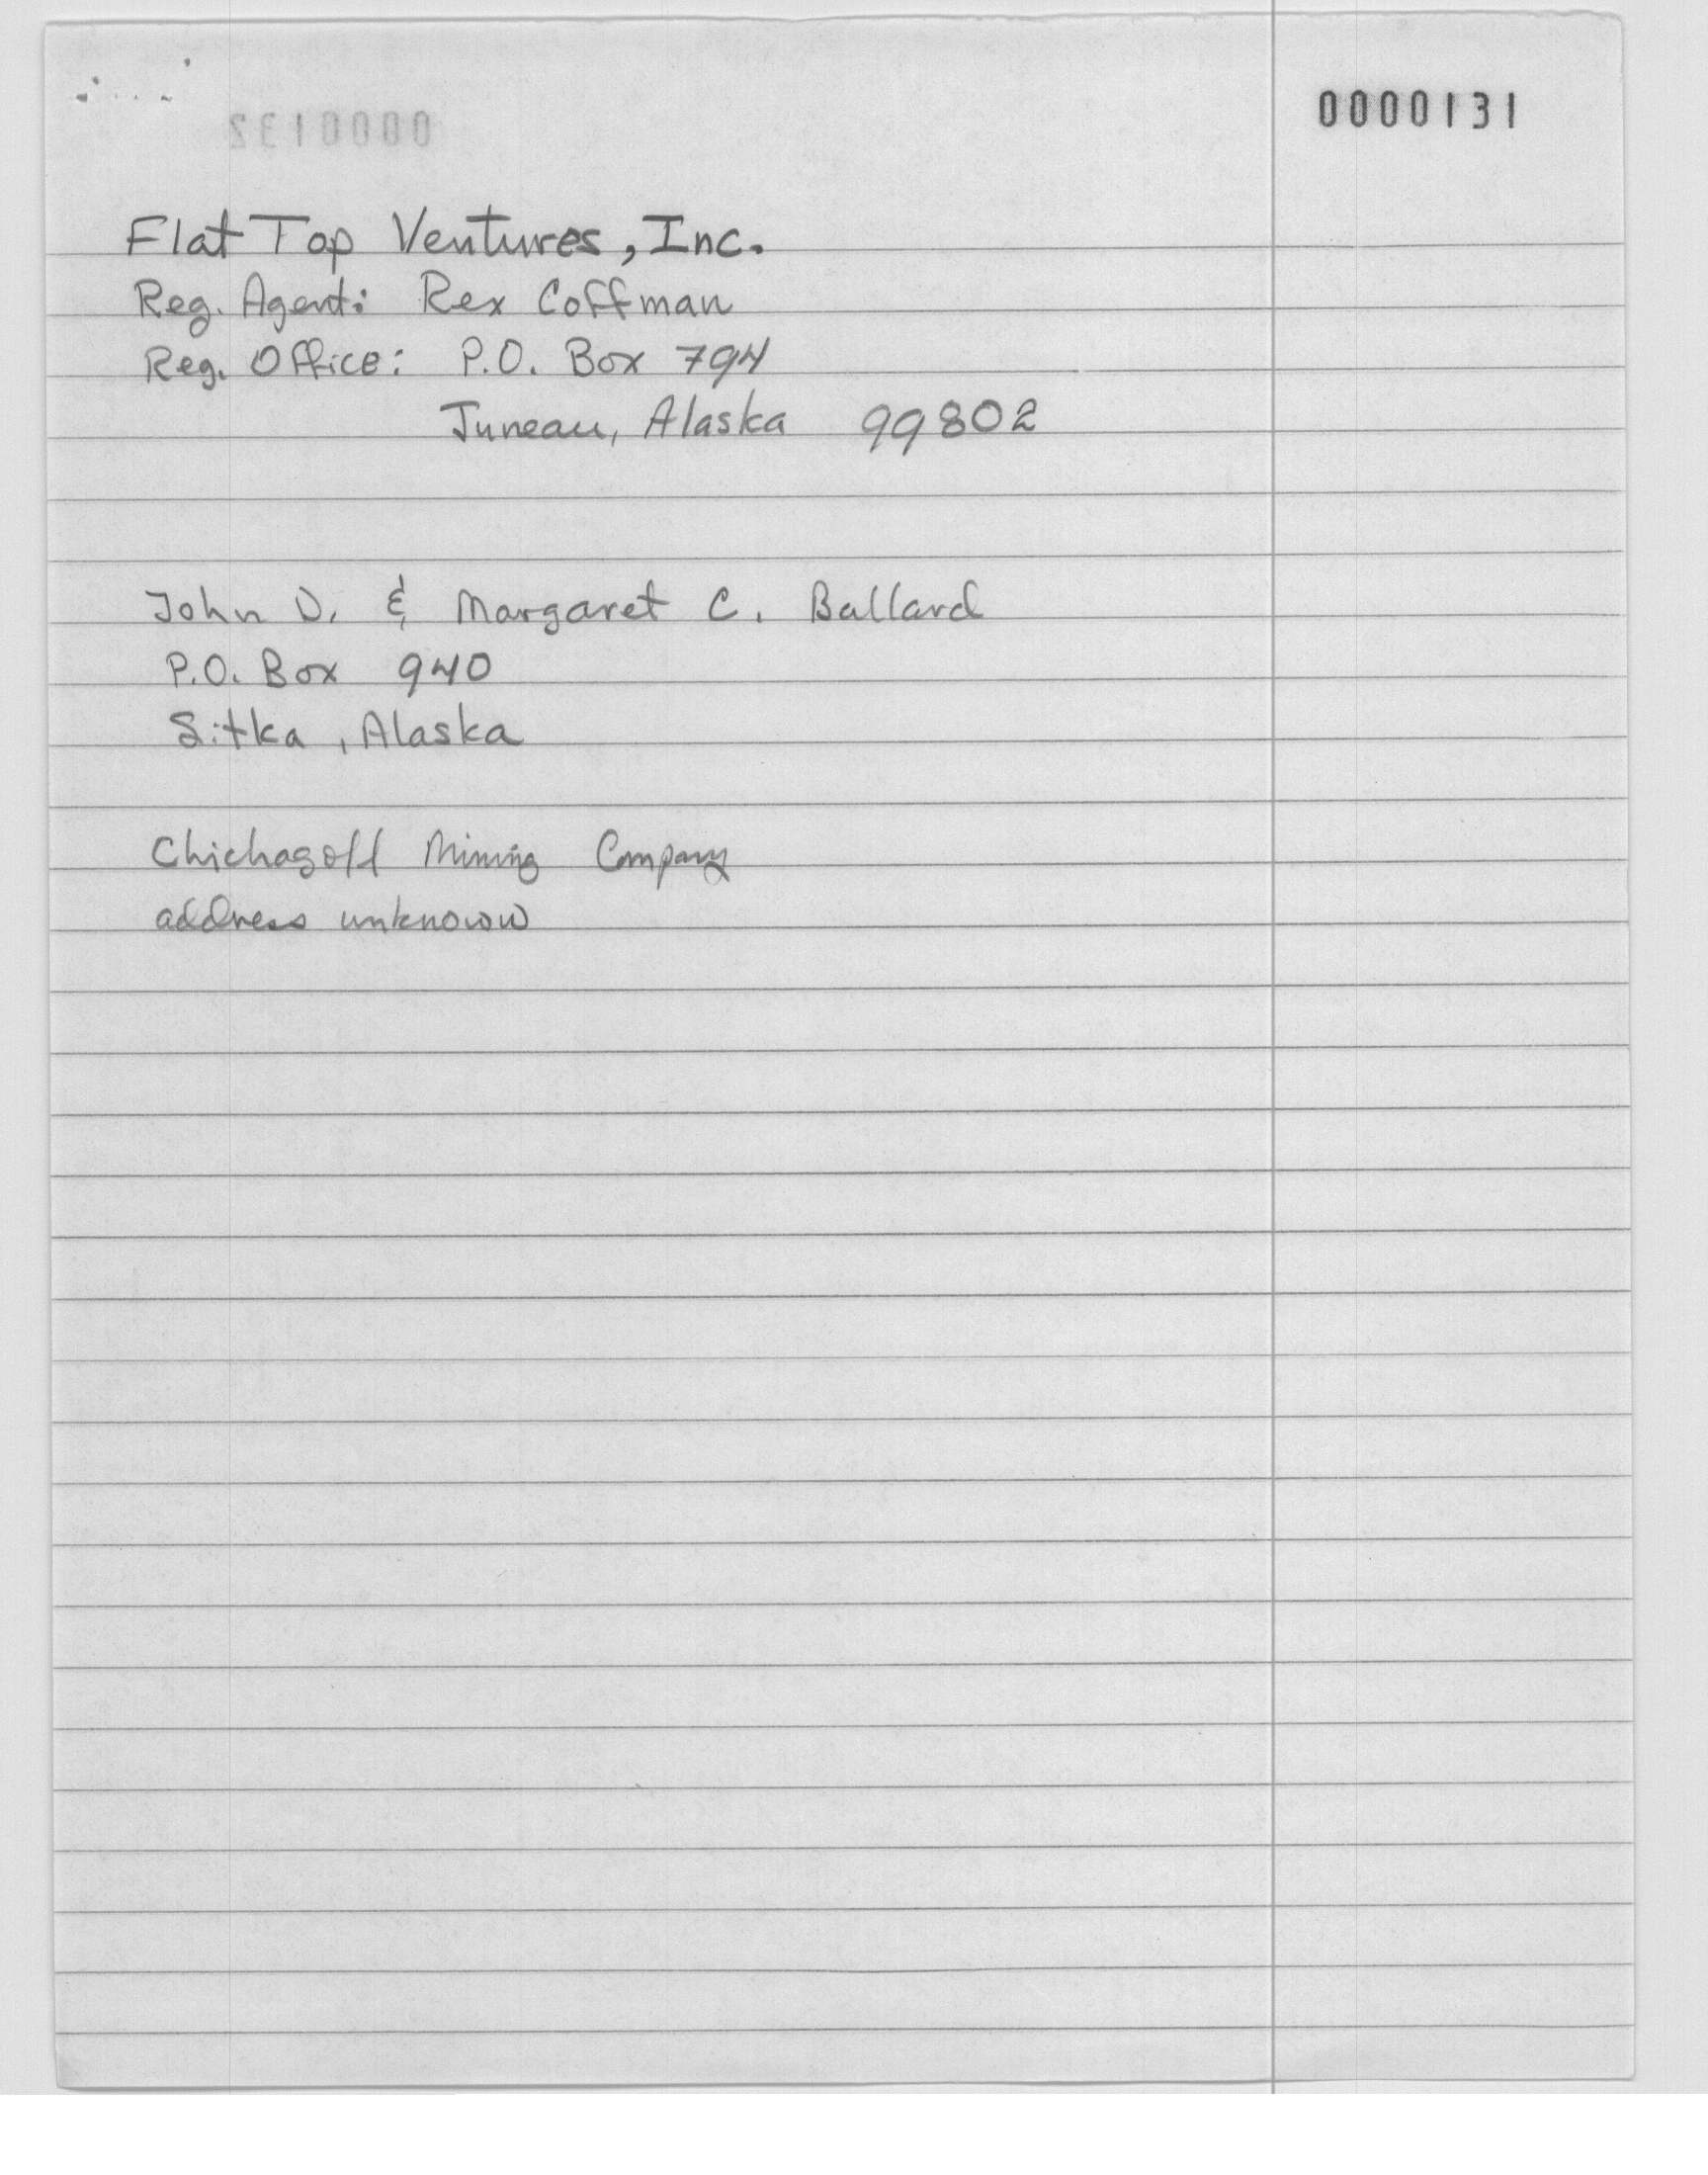 0000131
0000132
Flat Top Ventures, Inc.
Reg. Agent: Rex Coffman
Reg. Office: P.O. Box 794
Juneau, Alaska 99802
John D. & Margaret C. Ballard
P.O. Box 940
Sitka, Alaska
Chichagoff Mining Company
address unknown